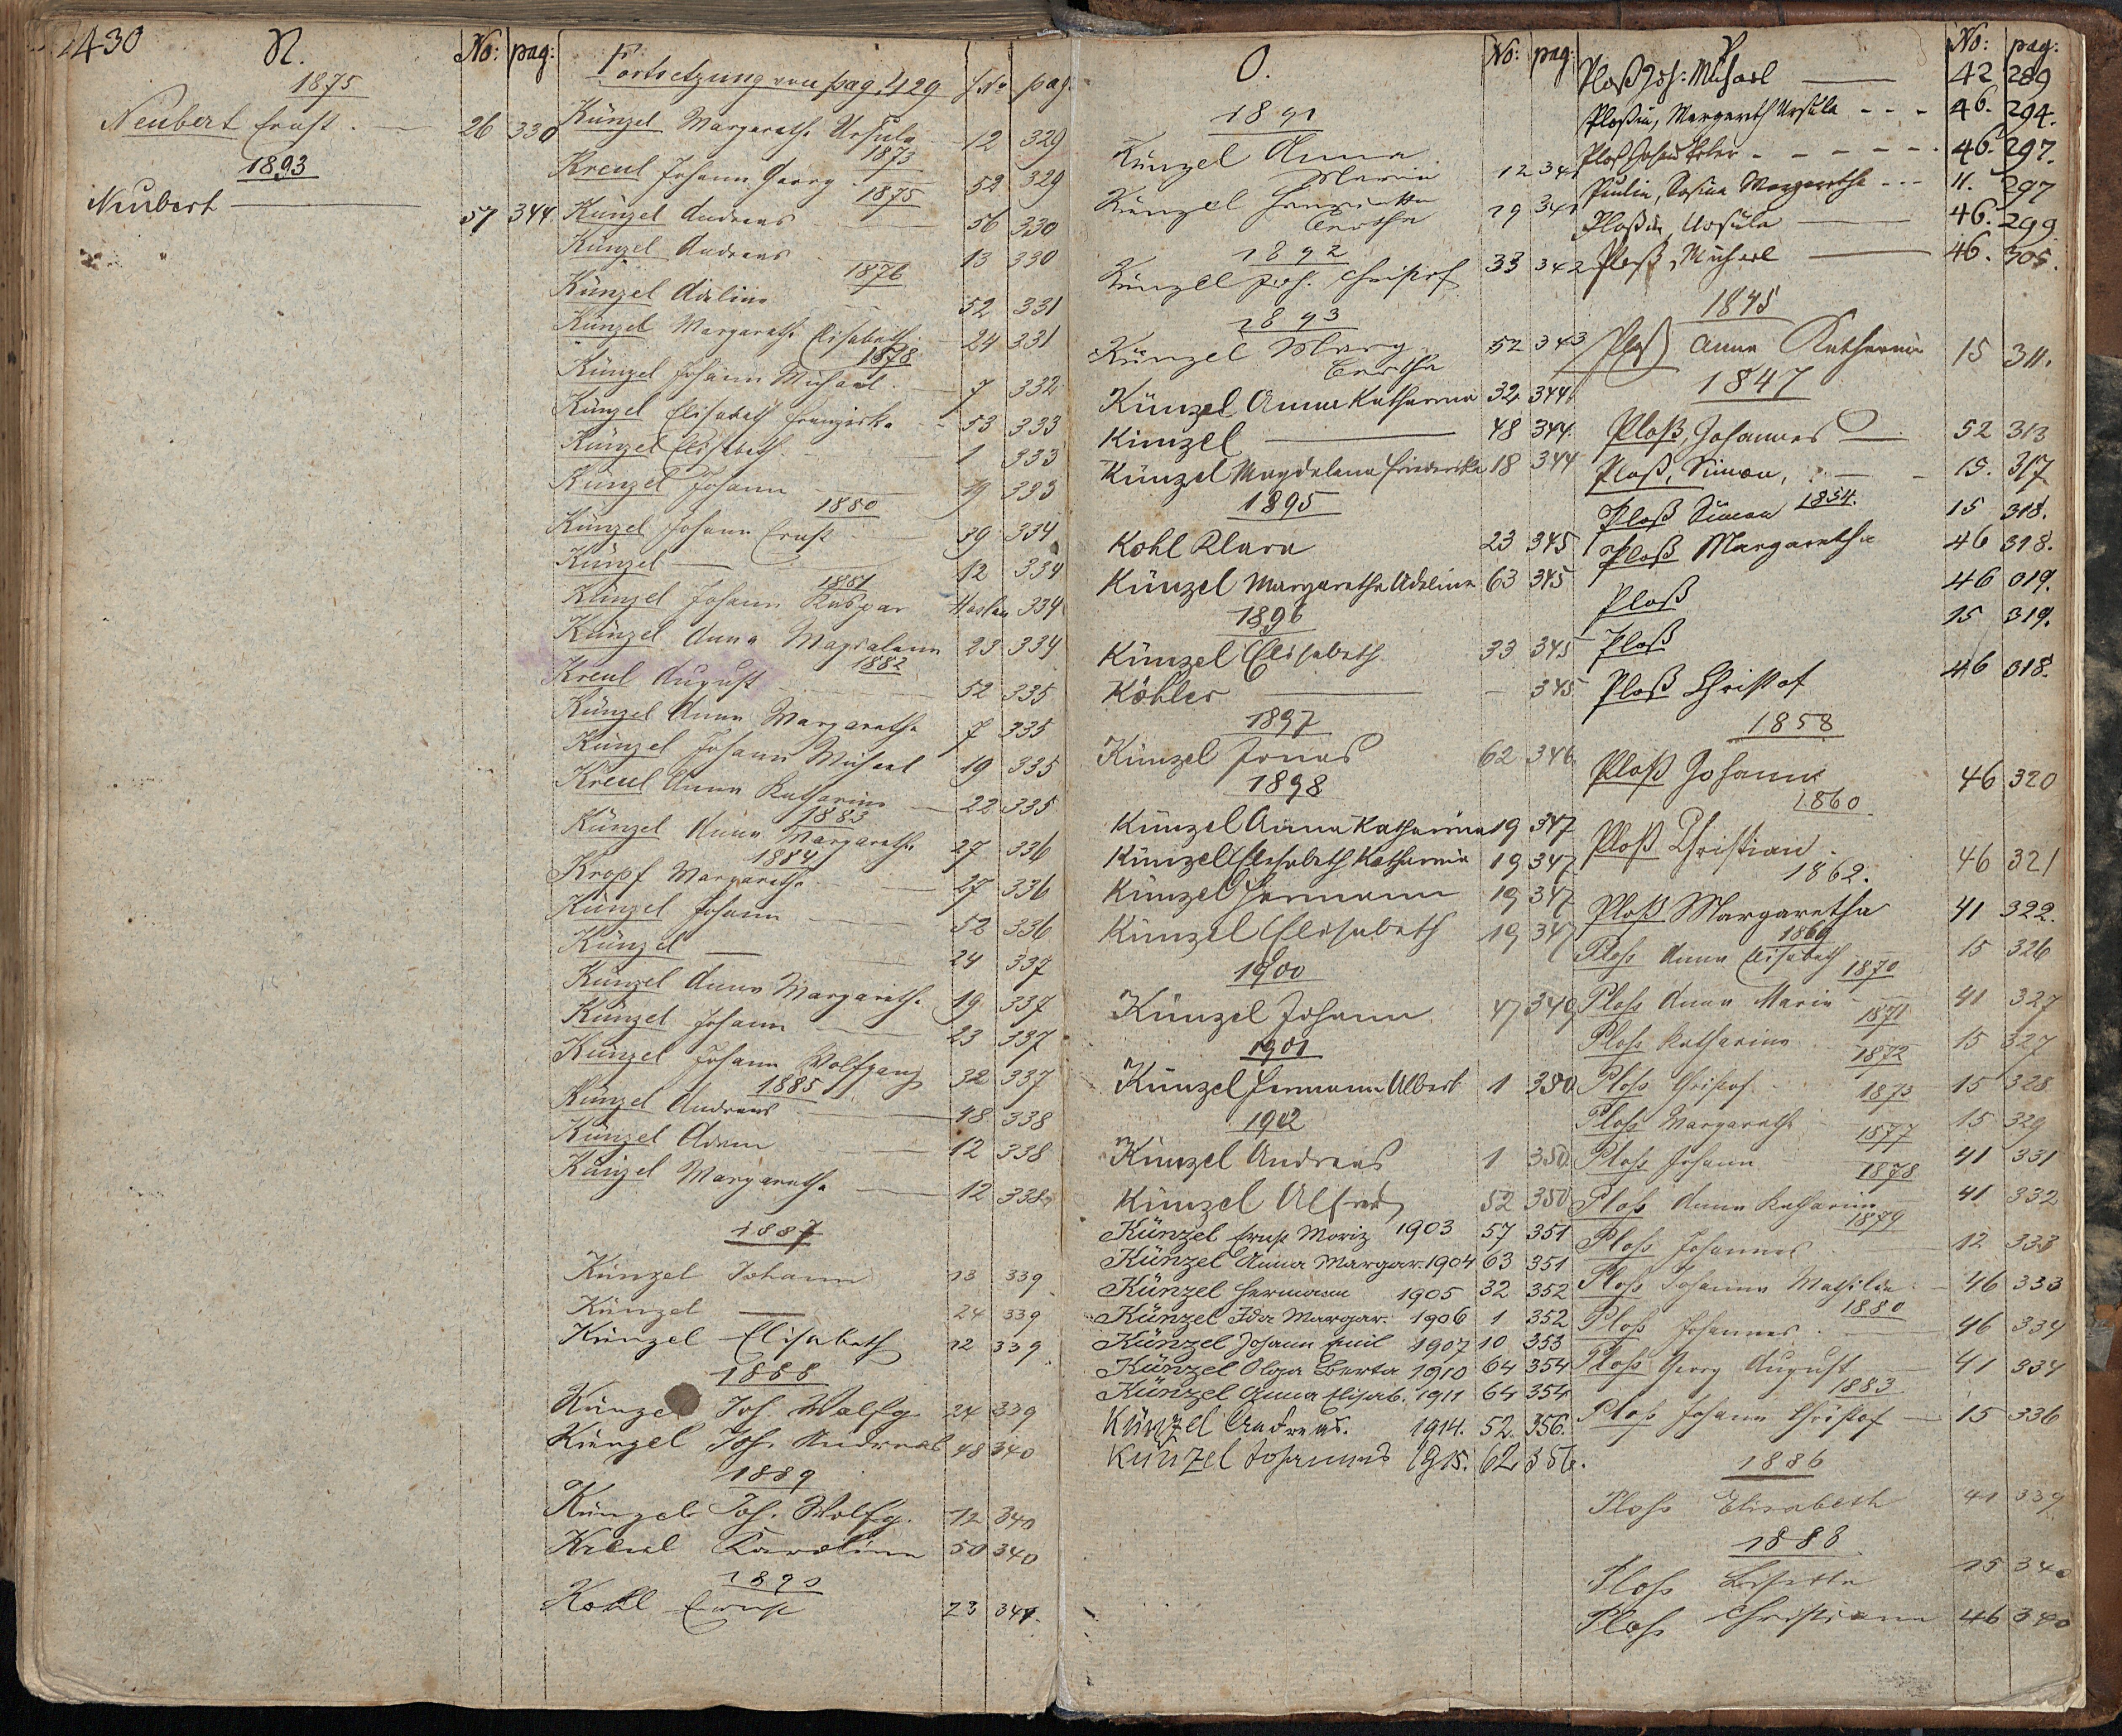 430
N.
No: pag:
1875
Neubert Ernst. — 26 330
1893
Neubert — 57 344
Fortsetzung von pag. 429 No pag.
Künzel Margaretha Ursula 12 329
1873
Kreul Johann Georg 52 329
1875
Künzel Andreas — 56 330
Künzel Andreas 13 330
1876
Künzel Adeline 52 331
Künzel Margaretha Elisabeth 24 331
1878
Künzel Johann Michael — 7 332
Künzel Elisabeth Franziska 53 333
Künzel Elisabeth — 1 333
Künzel Johann — 19 333
1880
Künzel Johann Ernst — 39 334
Künzel — 12 334
1881
Künzel Johann Kaspar Haslau 334
Künzel Anna Magdalena 23 334
1882
Kreul August — 52 335
Künzel Anna Margaretha 7 335
Künzel Johann Michael 19 335
Kreul Anna Katharina — 22 335
1883
Künzel Anna Margaretha 27 336
1884
Kropf Margaretha — 27 336
Künzel Johann — 52 336
Künzel — 24 337
Künzel Anna Margaretha 19 337
Künzel Johann — 23 337
Künzel Johann Wolfgang 32 337
1885
Künzel Andreas — 48 338
Künzel Adam — 12 338
Künzel Margaretha — 12 338
1887
Künzel Johann 13 339
Künzel — 24 339
Künzel Elisabeth 12 339
1888
Künzel Joh. Wolfg. 24 339
Künzel Joh. Andreas 48 340
1889
Künzel Joh. Wolfg. 12 340
Kreul Karolina 50 340
1890
Kohl Ernst 23 341.
O.
No: pag:
1891
Künzel Anna
Maria 12 341
Künzel Henrietta
Bertha 19 341
1892
Künzel Joh. Christof 33 342
1893
Künzel Marg.
Bertha 52 343
Künzel Anna Katharina 32 344
Künzel — 48 344
Künzel Magdalena Friederika 18 344
1895
Kohl Klara 23 345
Künzel Margaretha Adeline 63 345
1896
Künzel Elisabeth 33 345
Köhler — — 345
1897
Künzel Jonas 62 346
1898
Künzel Anna Katharina 19 347
Künzel Elisabeth Katharina 19 347
Künzel Hermann 19 347
Künzel Elisabeth 19 347
1900
Künzel Johann 47 349
1901
Künzel Hermann Albert 1 350
1902
Künzel Andreas 1 350
Künzel Alfred 52 350
Künzel Ernst Moriz 1903 57 351
Künzel Anna Margar. 1904 63 351
Künzel Hermann 1905 32 352
Künzel Ida Margar. 1906 1 352
Künzel Johann Emil 1907 10 353
Künzel Olga Berta 1910 64 354
Künzel Anna Elisab. 1911 64 354
Künzel Andreas. 1914. 52. 356.
Künzel Johannes 1915. 62 356.
P
No: pag:
Ploß Joh: Michael — 42 289
Ploßin, Margareth Ursula - - - 46. 294.
Ploß Johann Peter - - - - - 46. 297.
Margaretha - - - 11. 297
Ploßin, Ursula — 46. 299
Ploß, Michael — 46. 305.
1845
Ploß Anna Katharina 15 311.
1847
Ploß, Johannes — 52 313
Ploß, Simon, — 15. 317
Ploß Simon 1854. 15 318.
Ploß Margaretha 46 318.
Ploß 46 019.
Ploß 15 319.
Ploß Christof 46 018.
1858
Ploß Johann 46 320
1860
Ploß Christian. 46 321
1862.
Ploß Margaretha 41 322.
1869
Ploss Anna Elisabeth 15 326
1870
Ploss Anna Maria 41 327
1871
Ploss Katharina 15 327
1872
Ploss Christof 15 328
1873
Ploss Margaretha 15 329
1877
Ploss Johann 41 331
1878
Ploss Anna Katharina 41 332
1879
Ploss Johannes 12 333
Ploss Johanna Mathilda 46 333
1880
Ploss Johannes. — 46 334
Ploss Georg August — 41 334
1883
Ploss Johann Christof — 15 336
1886
Ploss Elisabeth 41 339
1888
Ploss Lisetta 15 340
Ploss Christiana 46 340